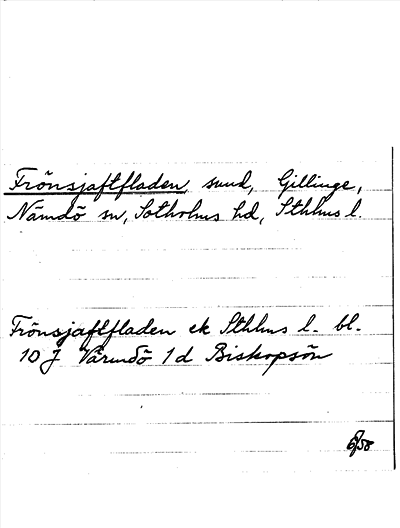 Frönsjaftfladen, sund, Gillinge,
Nämdö sn, Sotholms hd, Sthlms l.
Frönsjaftfladen ek Sthlms l. bl.
10 J Värmdö 1 d Biskopsön
58